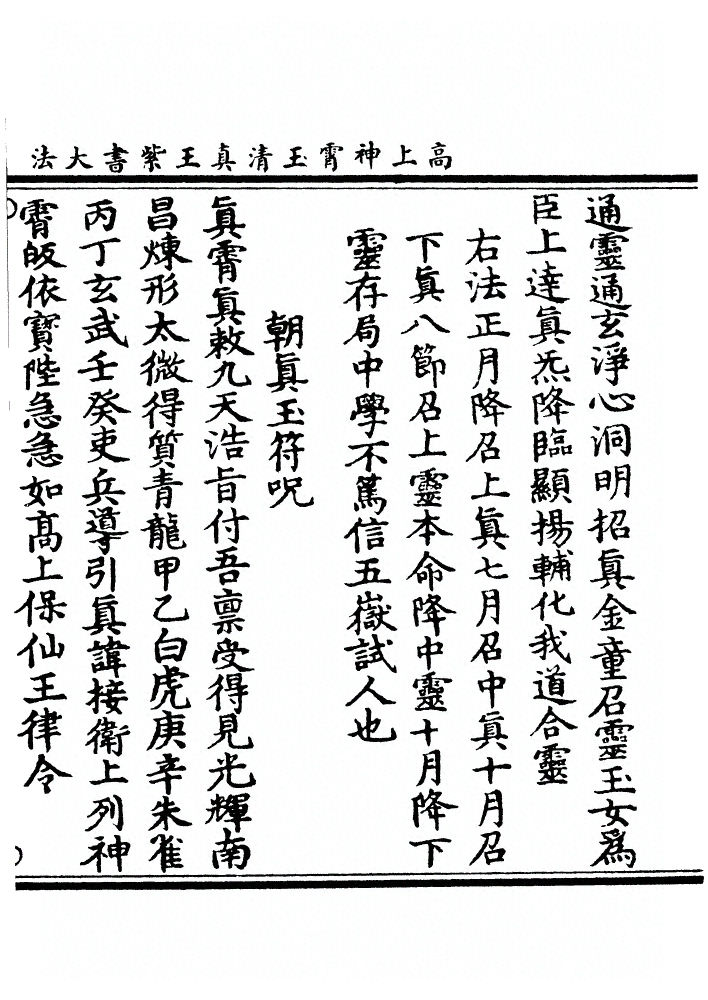 高上神霄玉清真王紫書大法
通靈通玄淨心洞明招眞金童召靈玉女爲
臣上達眞炁降臨顯揚輔化我道合靈
右法正月降召上眞七月召中眞十月召
下眞八節召上靈本命降中靈十月降下
靈存局中學不篤信五嶽試人也
朝眞玉符呪
眞霄眞敕九天浩旨付吾禀受得見光輝南
昌煉形太微得質青龍甲乙白虎庚辛朱雀
丙丁玄武壬癸吏兵導引眞諱接衛上列神
霄皈依寶陛急急如高上保仙王律令